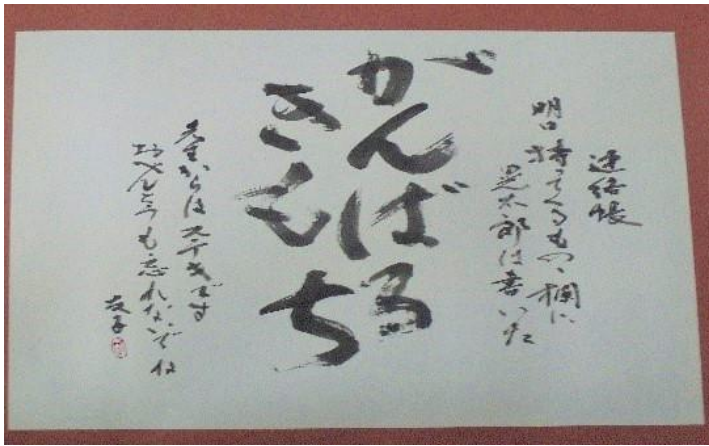 連絡帳
明日持ってくるもの、欄に
晃太郎は書いた
がんばる
きもち
先生からはステキです
お弁当も忘れないでね
友子